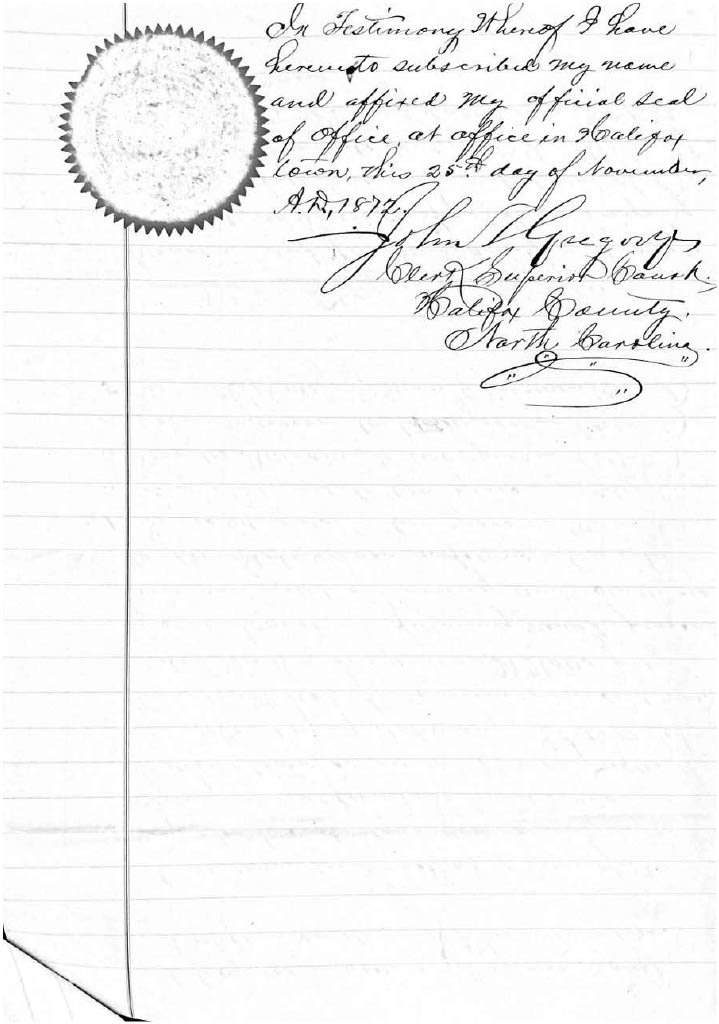 In Testimony Whereof I have
hereunto subscribed my name
and affixed my official seal
of office, at office in Halifax
town, this 25th day of November,
A.D., 1872.
John T Gregory
Clerk Superior Court,
Halifax County,
North Carolina.